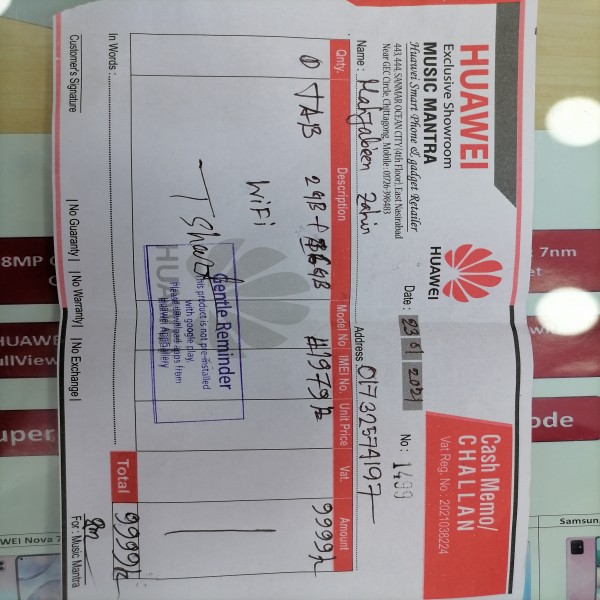 HUAWEI
Exclusive Showroom
MUSIC MANTRA
Huawei Smart Phone & gadget Retailer
443,444, SANMAR OCEAN CITY (4th Floor), East Nasirabad
Near GEC Circle, Chittagong, Mobile : 01726-398483
HUAWEI
Cash Memo/
CHALLAN
Vat Reg. No : 2021038224
Date : 2021
No : 1499
Name : Zahin
Address 01732574197
Qnty. Description Model No IMEI No. Unit Price Vat. Amount
TAB 2GB+ 9999/-
WiFi
T Shart
HUAWEI
Gentle Reminder
This product is not pre-installed
with google play,
Please download apps from
Huawei AppGallery
In Words :
Total 9999/-
Customer's Signature
| No Guaranty | No Warranty | No Exchange |
For : Music Mantra
8MP
7nm
HUAWEI
ullView
uper
ode
WEI Nova 7
Samsun